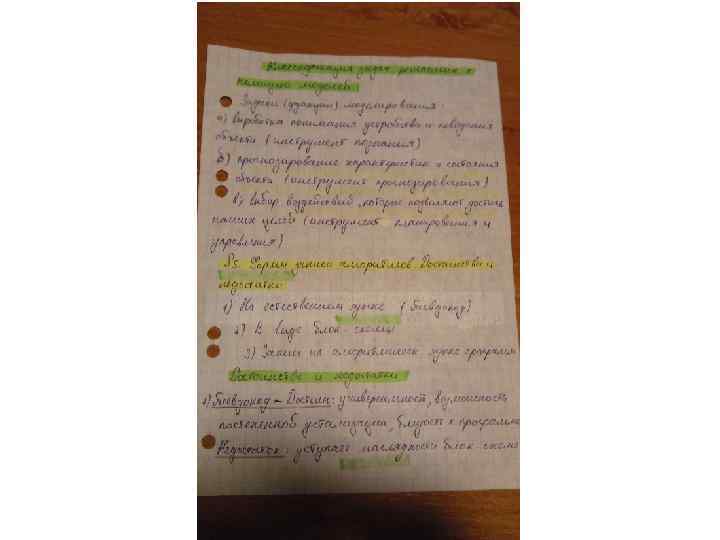 Классификация задач решаемых с
помощью моделей
Задачи (функции) моделирования:
а) Выработка понимания устройства и поведения
объекта (инструмент познания)
б) прогнозирование характеристик и состояния
объекта (инструмент прогнозирования)
в) Выбор воздействий, которые позволяют достичь
целей (инструмент планирования и
управления)
Формы записи алгоритмов. Достоинства и
недостатки
1) На естественном языке (Псевдокод)
2) В виде блок-схемы
3) Запись на алгоритмическом языке программ
Достоинства и недостатки
1) Псевдокод - Достоин: универсальность, возможность
постепенной детализации, близость к программе
Недостаток: уступает наглядности блок-схемы